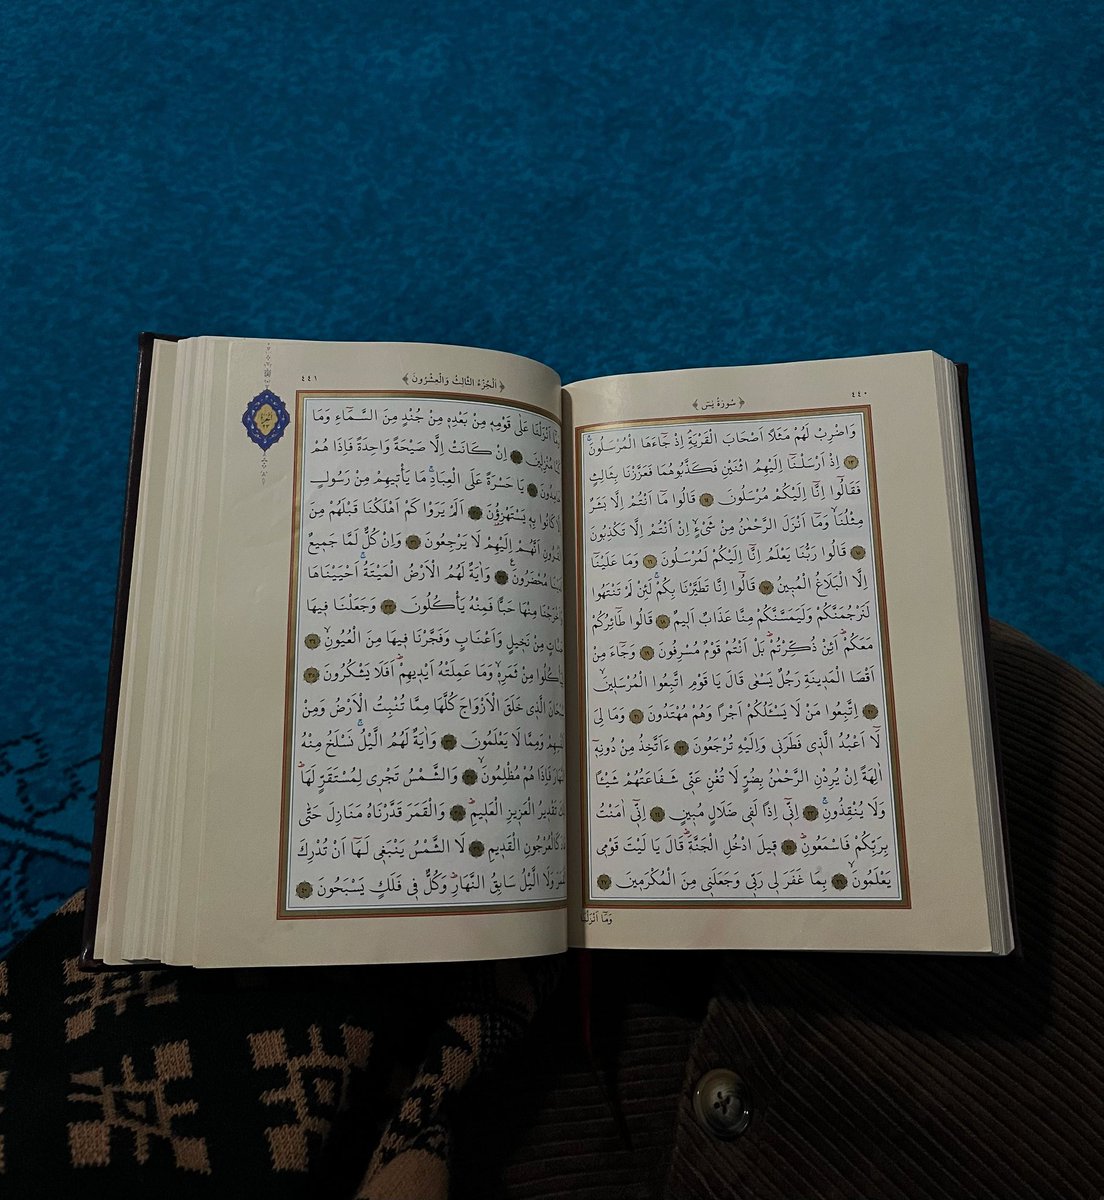 ٤٤٠
﴿ سُورَةُ يٰسٓ ﴾
وَاضْرِبْ لَهُمْ مَثَلًا اَصْحَابَ الْقَرْيَةِۢ اِذْ جَٓاءَهَا الْمُرْسَلُونَۚ
١٣ اِذْ اَرْسَلْنَٓا اِلَيْهِمُ اثْنَيْنِ فَكَذَّبُوهُمَا فَعَزَّزْنَا بِثَالِثٍ
فَقَالُٓوا اِنَّٓا اِلَيْكُمْ مُرْسَلُونَ ١٤ قَالُوا مَٓا اَنْتُمْ اِلَّا بَشَرٌ
مِثْلُنَاۙ وَمَٓا اَنْزَلَ الرَّحْمٰنُ مِنْ شَيْءٍۙ اِنْ اَنْتُمْ اِلَّا تَكْذِبُونَ
١٥ قَالُوا رَبُّنَا يَعْلَمُ اِنَّٓا اِلَيْكُمْ لَمُرْسَلُونَ ١٦ وَمَا عَلَيْنَٓا
اِلَّا الْبَلَاغُ الْمُبِينُ ١٧ قَالُٓوا اِنَّا تَطَيَّرْنَا بِكُمْۚ لَئِنْ لَمْ تَنْتَهُوا
لَنَرْجُمَنَّكُمْ وَلَيَمَسَّنَّكُمْ مِنَّا عَذَابٌ اَلِيمٌ ١٨ قَالُوا طَٓائِرُكُمْ
مَعَكُمْۜ اَئِنْ ذُكِّرْتُمْۜ بَلْ اَنْتُمْ قَوْمٌ مُسْرِفُونَ ١٩ وَجَٓاءَ مِنْ
اَقْصَا الْمَدِينَةِ رَجُلٌ يَسْعٰى قَالَ يَا قَوْمِ اتَّبِعُوا الْمُرْسَلِينَۙ
٢٠ اِتَّبِعُوا مَنْ لَا يَسْـَٔلُكُمْ اَجْرًا وَهُمْ مُهْتَدُونَ ٢١ وَمَا لِيَ
لَٓا اَعْبُدُ الَّذِي فَطَرَنِي وَاِلَيْهِ تُرْجَعُونَ ٢٢ ءَاَتَّخِذُ مِنْ دُونِهِٓ
اٰلِهَةً اِنْ يُرِدْنِ الرَّحْمٰنُ بِضُرٍّ لَا تُغْنِ عَنِّي شَفَاعَتُهُمْ شَيْـًٔا
وَلَا يُنْقِذُونِۚ ٢٣ اِنِّٓي اِذًا لَفِي ضَلَالٍ مُبِينٍ ٢٤ اِنِّٓي اٰمَنْتُ
بِرَبِّكُمْ فَاسْمَعُونِۜ ٢٥ قِيلَ ادْخُلِ الْجَنَّةَۜ قَالَ يَا لَيْتَ قَوْمِي
يَعْلَمُونَۙ ٢٦ بِمَا غَفَرَ لِي رَبِّي وَجَعَلَنِي مِنَ الْمُكْرَمِينَ ٢٧
وَمَٓا اَنْزَلْنَا
﴿ اَلْجُزْءُ الثَّالِثُ وَالْعِشْرُونَ ﴾
٤٤١
اَنْزَلْنَا عَلٰى قَوْمِهِ مِنْ بَعْدِهِ مِنْ جُنْدٍ مِنَ السَّمَٓاءِ وَمَا
مُنْزِلِينَ ٢٨ اِنْ كَانَتْ اِلَّا صَيْحَةً وَاحِدَةً فَاِذَا هُمْ
٢٩ يَا حَسْرَةً عَلَى الْعِبَادِۚ مَا يَأْتِيهِمْ مِنْ رَسُولٍ
كَانُوا بِهِ يَسْتَهْزِؤُ۫نَ ٣٠ اَلَمْ يَرَوْا كَمْ اَهْلَكْنَا قَبْلَهُمْ مِنَ
اَنَّهُمْ اِلَيْهِمْ لَا يَرْجِعُونَ ٣١ وَاِنْ كُلٌّ لَمَّا جَمِيعٌ
مُحْضَرُونَ ٣٢ وَاٰيَةٌ لَهُمُ الْاَرْضُ الْمَيْتَةُۚ اَحْيَيْنَاهَا
وَاَخْرَجْنَا مِنْهَا حَبًّا فَمِنْهُ يَأْكُلُونَ ٣٣ وَجَعَلْنَا فِيهَا
مِنْ نَخِيلٍ وَاَعْنَابٍ وَفَجَّرْنَا فِيهَا مِنَ الْعُيُونِۙ ٣٤
مِنْ ثَمَرِهِۙ وَمَا عَمِلَتْهُ اَيْدِيهِمْۜ اَفَلَا يَشْكُرُونَ ٣٥
الَّذِي خَلَقَ الْاَزْوَاجَ كُلَّهَا مِمَّا تُنْبِتُ الْاَرْضُ وَمِنْ
وَمِمَّا لَا يَعْلَمُونَ ٣٦ وَاٰيَةٌ لَهُمُ الَّيْلُۚ نَسْلَخُ مِنْهُ
فَاِذَا هُمْ مُظْلِمُونَۙ ٣٧ وَالشَّمْسُ تَجْرِي لِمُسْتَقَرٍّ لَهَاۜ
تَقْدِيرُ الْعَزِيزِ الْعَلِيمِۜ ٣٨ وَالْقَمَرَ قَدَّرْنَاهُ مَنَازِلَ حَتّٰى
كَالْعُرْجُونِ الْقَدِيمِ ٣٩ لَا الشَّمْسُ يَنْبَغِي لَهَٓا اَنْ تُدْرِكَ
وَلَا الَّيْلُ سَابِقُ النَّهَارِۜ وَكُلٌّ فِي فَلَكٍ يَسْبَحُونَ ٤٠